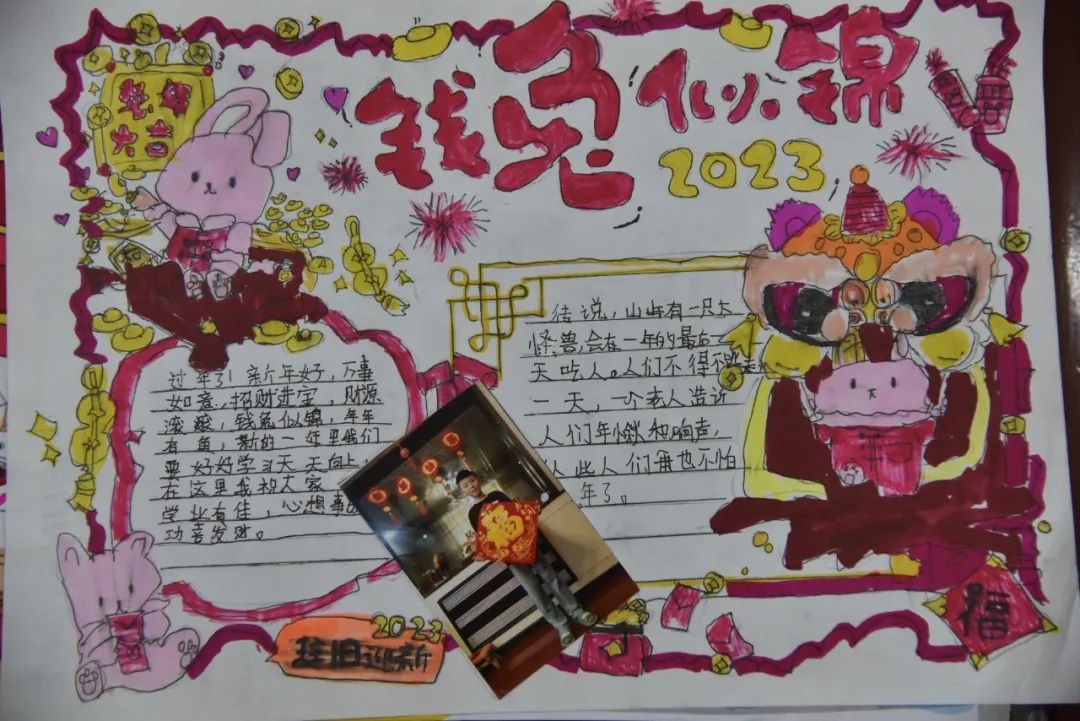 钱兔似锦
2023
兔年
大吉
过年了!新年好,万事
如意,招财进宝,财源
滚滚,钱兔似锦,年年
有鱼,新的一年里我们
要好好学习天天向上,
在这里我祝大家
学业有佳,心想事
功喜发财。
传说,山上有一只大
怪兽,会在一年的最后一
天吃人。人们不得不
一天,一个老人告诉
人们年怕火和响声,
从此人们再也不怕
年了。
福
2023
辞旧迎新
福